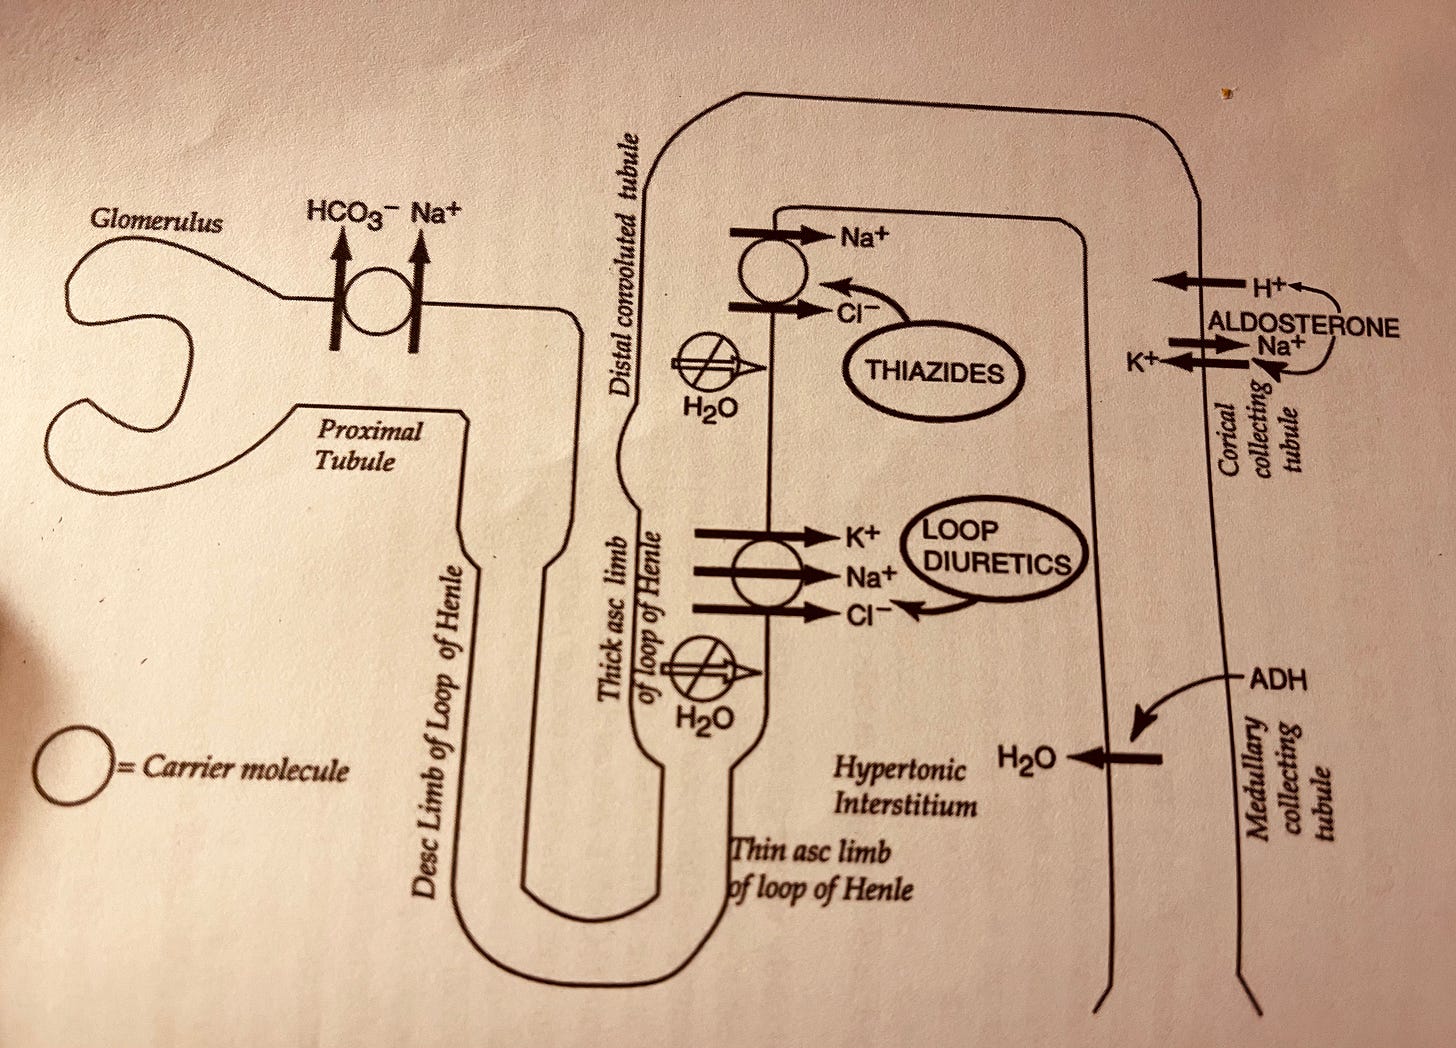 Glomerulus
HCO₃⁻ Na⁺
Proximal
Tubule
Desc Limb of Loop of Henle
= Carrier molecule
Distal convoluted tubule
Na⁺
Cl⁻
THIAZIDES
H₂O
Thick asc limb
of loop of Henle
K⁺
Na⁺
Cl⁻
LOOP
DIURETICS
H₂O
Thin asc limb
of loop of Henle
Hypertonic
Interstitium
H⁺
ALDOSTERONE
Na⁺
K⁺
Corical
collecting
tubule
ADH
H₂O
Medullary
collecting
tubule